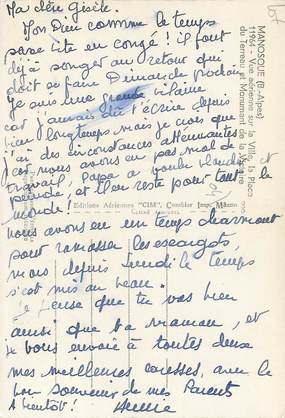 Ma chère Gisèle.
Mon Dieu comme le temps
passe vite en congé ! il faut
déjà songer au retour qui
doit se faire Dimanche prochain
Je suis une grande vilaine
car j'aurais dû t'écrire depuis
bien longtemps mais je crois que
j'ai des circonstances atténuantes
car nous avons eu pas mal de
travail, Papa a voulu blanchir et
peindre, et il en reste pour tout le
monde !
nous avons eu un temps charmant
pour ramasser les escargots,
mais depuis Lundi le temps
s'est mis au beau.
Je pense que tu vas bien
ainsi que ta maman, et
je vous envoie à toutes deux
mes meilleures caresses, avec le
bon souvenir de mes Parents
A bientôt !
MANOSQUE (B.-Alpes)
11964 - Vue aérienne sur la Ville, la Place
du Terreau et Monument de la Victoire
Editions Aériennes "CIM", Combier Imp. Mâcon